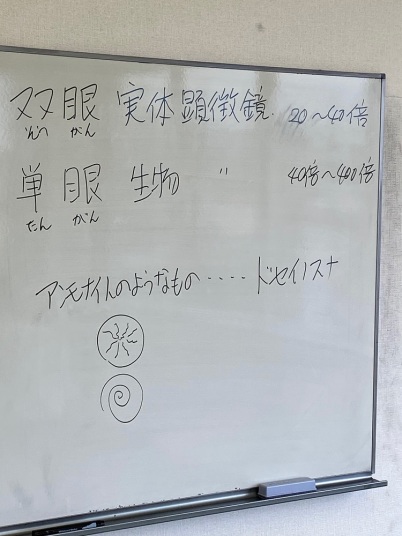 双眼 実体顕微鏡 20～40倍
がん
単眼 生物 〃 40倍～400倍
たん がん
アンモナイトのようなもの‥‥ ドセイノスナ